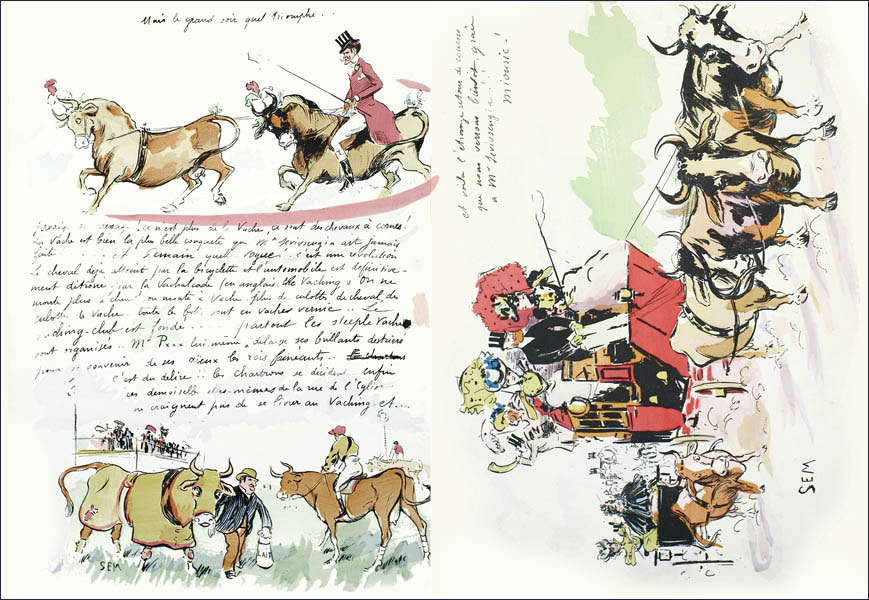 Mais le grand soir quel triomphe...
ce n'est plus de la Vache, ce sont des chevaux à cornes!
La Vache est bien la plus belle conquête que Mr ait jamais
fait et demain quelle vogue c'est une révolution
Le cheval déjà atteint par la bicyclette et l'automobile est définitive-
ment détrôné par la Vachalcade (en anglais: the Vaching) On ne
monte plus à cheval on monte à Vache. plus de culottes de cheval, des
culottes de Vache. toute la sont en vaches vernie.. Le
-ching-club est fondé.... partout les steeple Vache
sont organisés.. Mr P... lui-même, ses brillants destriers
pour se souvenir de ses dieux les rois fainéants..
c'est du délire!! les Chartrons se décident enfin
ces demoiselles elles-mêmes de la rue de l'Eglise
ne craignent pas de se livrer au Vaching et...
LAIT
SEM
et voilà l'étrange retour de courses
que nous verrons bientôt grâce
a Mr
Miousic!
SEM